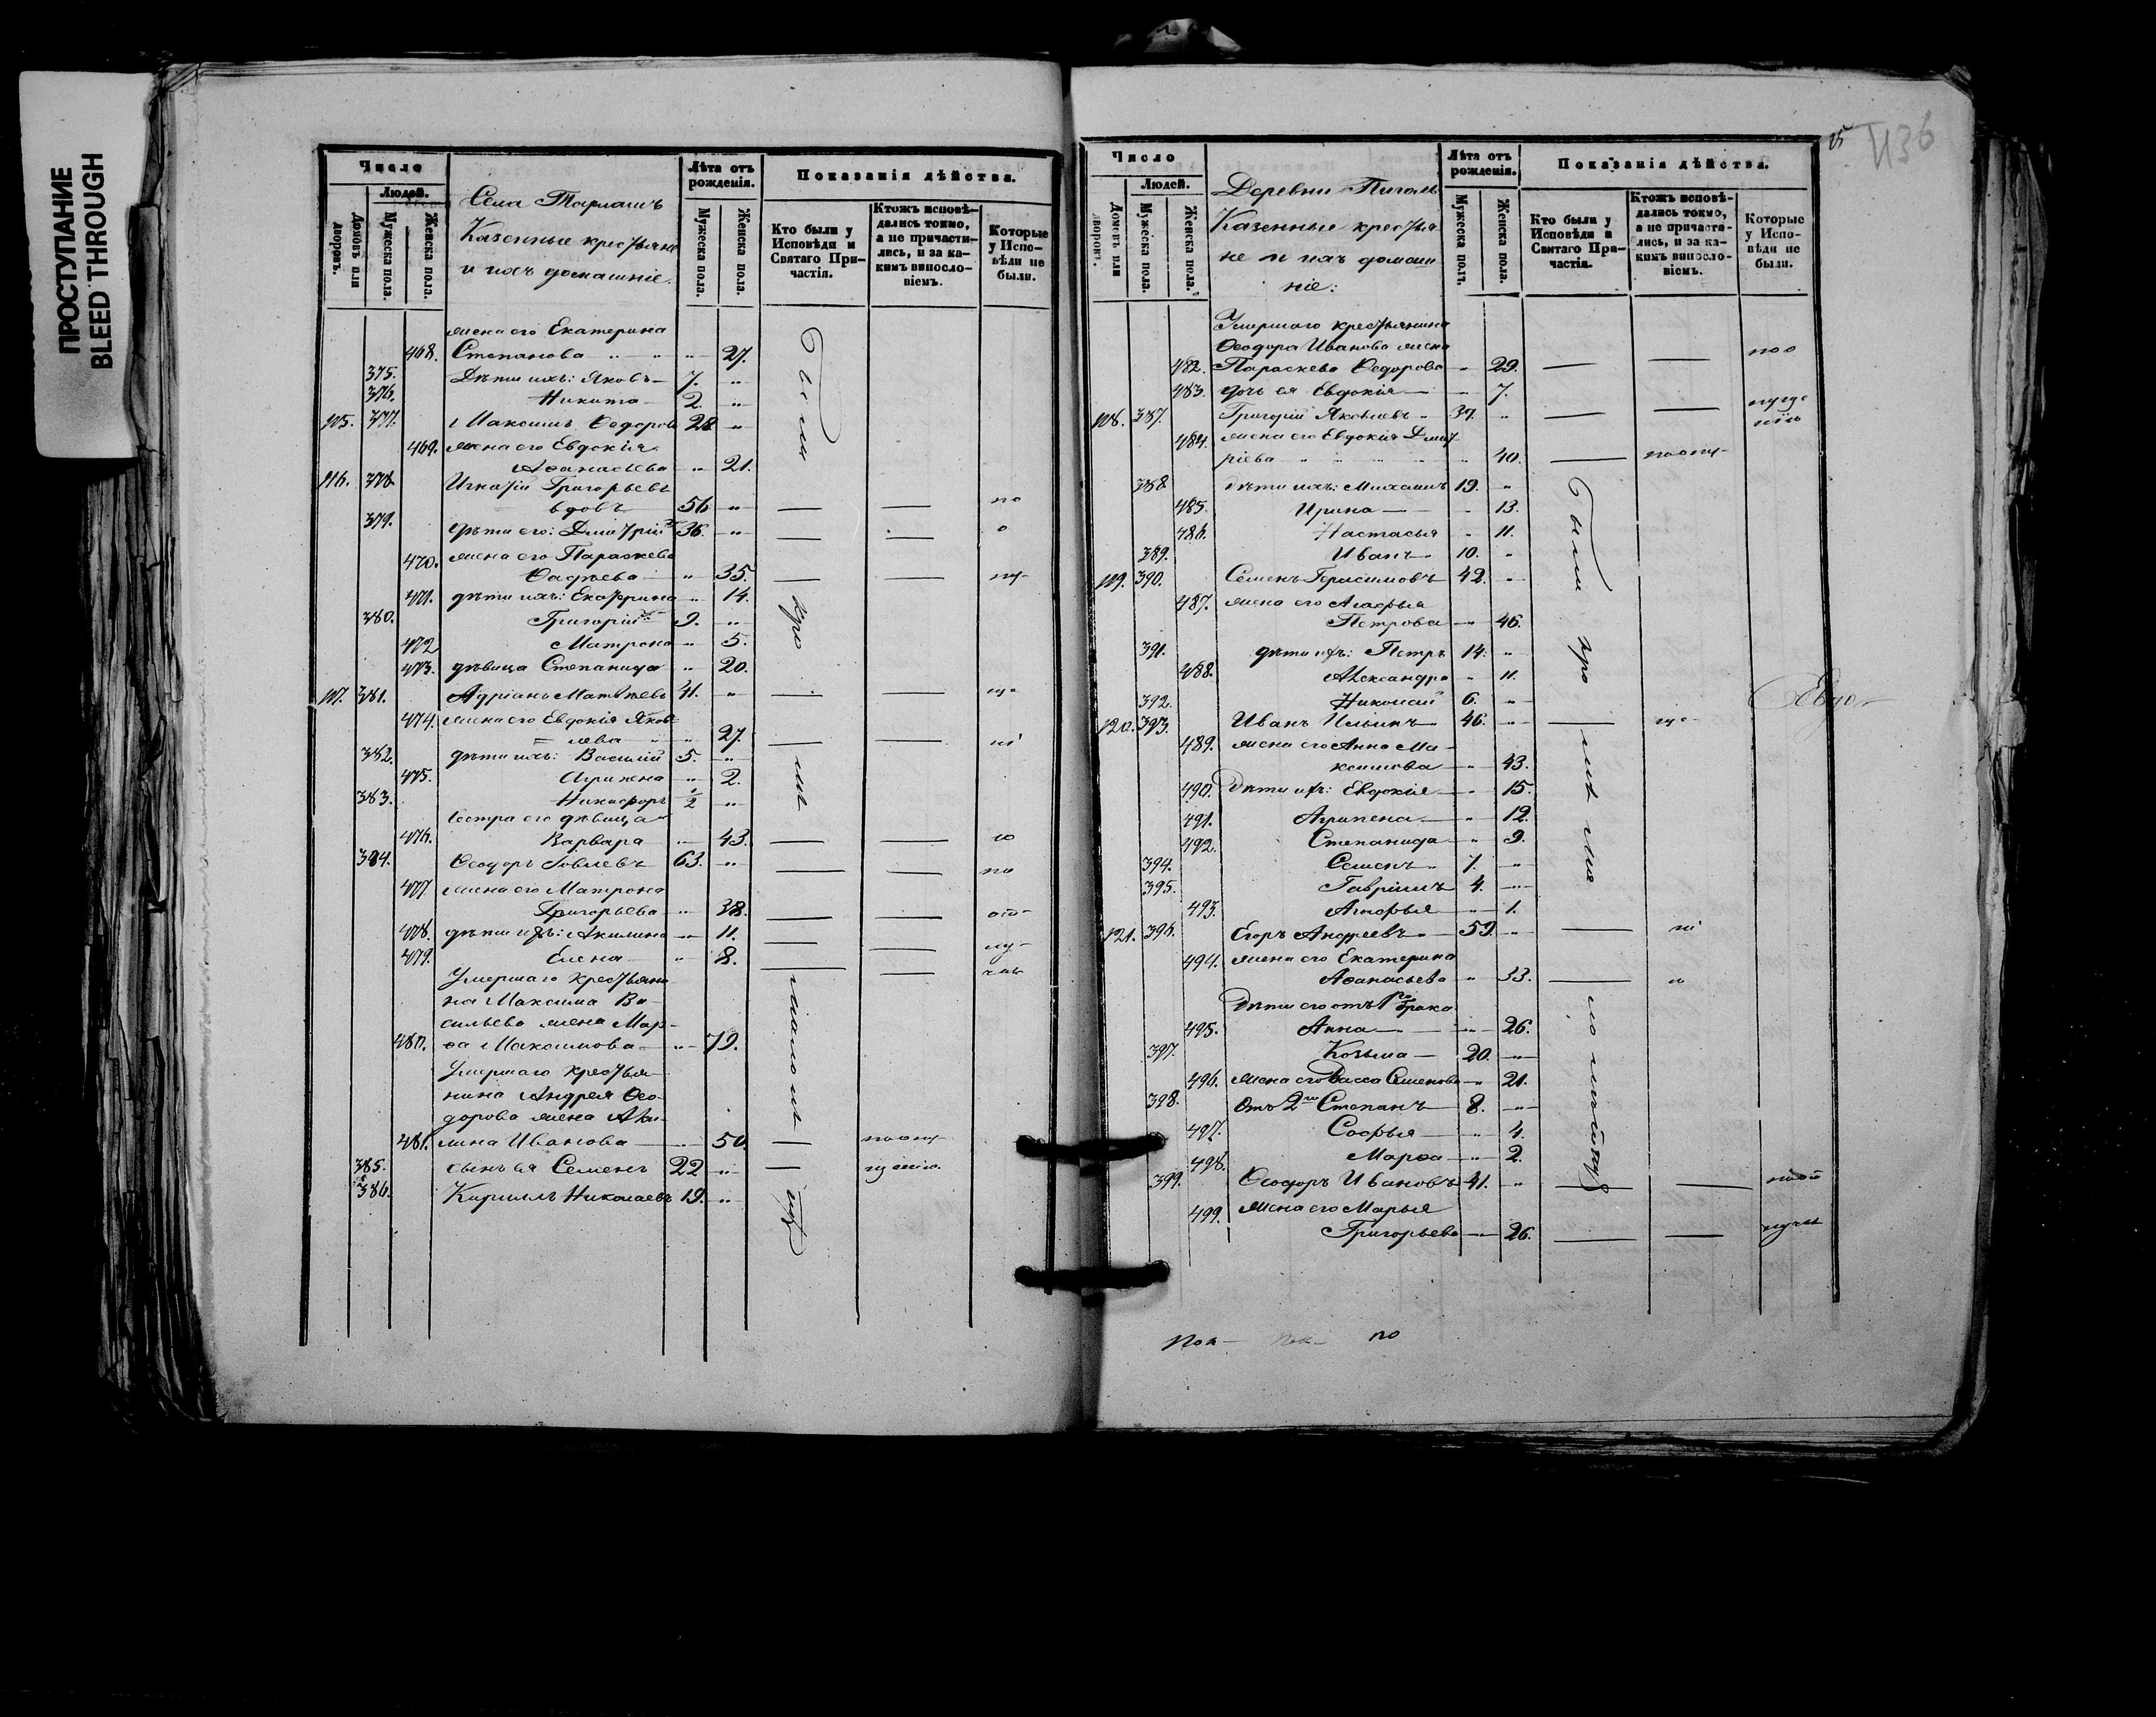 ПРОСТУПАНИЕ
BLEED THROUGH
Число
Людей.
Домовъ или дворовъ.
Мужеска пола.
Женска пола.
Села
Казенные крестьяне
и ихъ домашніе.
Лѣта отъ рожденія.
Мужеска пола.
Женска пола.
Показанія дѣйства.
Кто были у Исповѣди и Святаго При-частія.
Ктожъ исповѣ-дались токмо, а не причасти-лись, и за ка-кимъ виносло-віемъ.
Которые у Испо-вѣди не были.
жена его Екатерина
468. Степанова 27.
375. Дѣти ихъ: Яковъ 7.
376. Никита 2.
115. 377. Максимъ Ѳедоровъ 28
469. жена его Евдокія
Аѳанасьева 21.
116. 378 Игнатій Григорьевъ
вдовъ 56
379. дѣти его: Дмитрій 36.
470. жена его Параскева
Ѳадѣева 35.
471. дѣти ихъ: Екатерина 14.
380. Григорій 9.
472 Матрона 5.
473. дѣвица Степанида 20.
117. 381. Адріанъ Матѳѣевъ 41.
474. жена его Евдокія Яков
лева 27.
382. дѣти ихъ: Василій 5.
475. Агрипена 2.
383. Никифоръ ½
сестра его дѣвица
476. Варвара 43.
384. Ѳеодоръ 63.
477 жена его Матрона
Григорьева 38.
478. дѣти ихъ: Акилина 11.
479. Елена 8.
Умершаго крестьяни
на Максима Ва-
сильева жена Мар-
480. ѳа Максимова 79.
Умершаго крестья-
нина Андрея Ѳео-
дорова жена Аку-
481. лина Иванова 50
385. сынъ ея Семенъ 22
386. Кириллъ Николаевъ 19.
Были
Число
Людей.
Домовъ или дворовъ.
Мужеска пола.
Женска пола.
Деревни
Казенные крестья
не и ихъ домаш
ніе:
Лѣта отъ рожденія.
Мужеска полъ.
Женска пола.
Показанія дѣйства.
Кто были у Исповѣди и Святаго При-частія.
Ктожъ исповѣ-дались токмо, а не причасти-лись, и за ка-кимъ виносло-віемъ.
Которые у Испо-вѣди не были.
Умершаго крестьянина
Ѳеодора Иванова жена
482. Параскева Ѳедорова 29.
483. дочь ея Евдокія 7.
118. 387. Григорій Яковлевъ 37.
484. жена его Евдокія Дмит
ріева 40.
388 дѣти ихъ: Михаилъ 19.
485. Ирина 13.
486. Настасья 11.
389. Иванъ 10.
119. 390. Семенъ Герасимовъ 42.
487. жена его Агафья
Петрова 46.
391. дѣти ихъ: Петръ 14.
488. Александра 11.
392. Николай 6.
120. 393. Иванъ Ильинъ 46.
489. жена его Анна Ма-
ксимова 43.
490. Дѣти ихъ: Евдокія 15.
491. Агрипена 12.
492. Степанида 9.
394. Семенъ 7.
395. Гавріилъ 4.
493. Агафья 1.
121. 396. Егоръ Андреевъ 59.
494. жена его Екатерина
Аѳанасьева 33.
Дѣти его отъ 1го брака
495. Анна 26.
397. Козьма 20.
496. жена его Васса Семенова 21.
398. Отъ 2го Степанъ 8.
497. Софья 4.
498. Марѳа 2.
399. Ѳеодоръ Ивановъ 41.
499. жена его Марья
Григорьева 26.
Были
Евдо